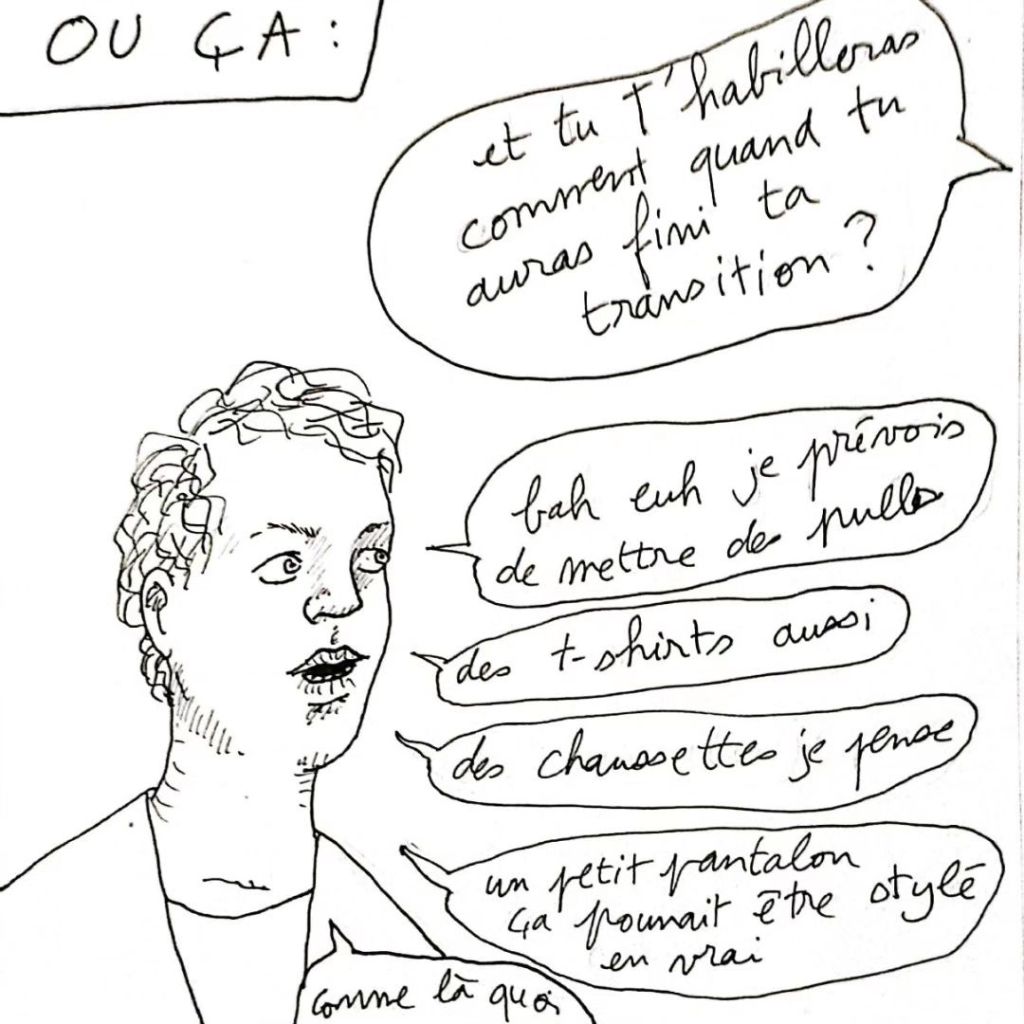 OU ÇA :
et tu t'habilleras
comment quand tu
auras fini ta
transition ?
bah euh je prévois
de mettre des pulls
des t-shirts aussi
des chaussettes je pense
un petit pantalon
ça pourrait être stylé
en vrai
comme là quoi